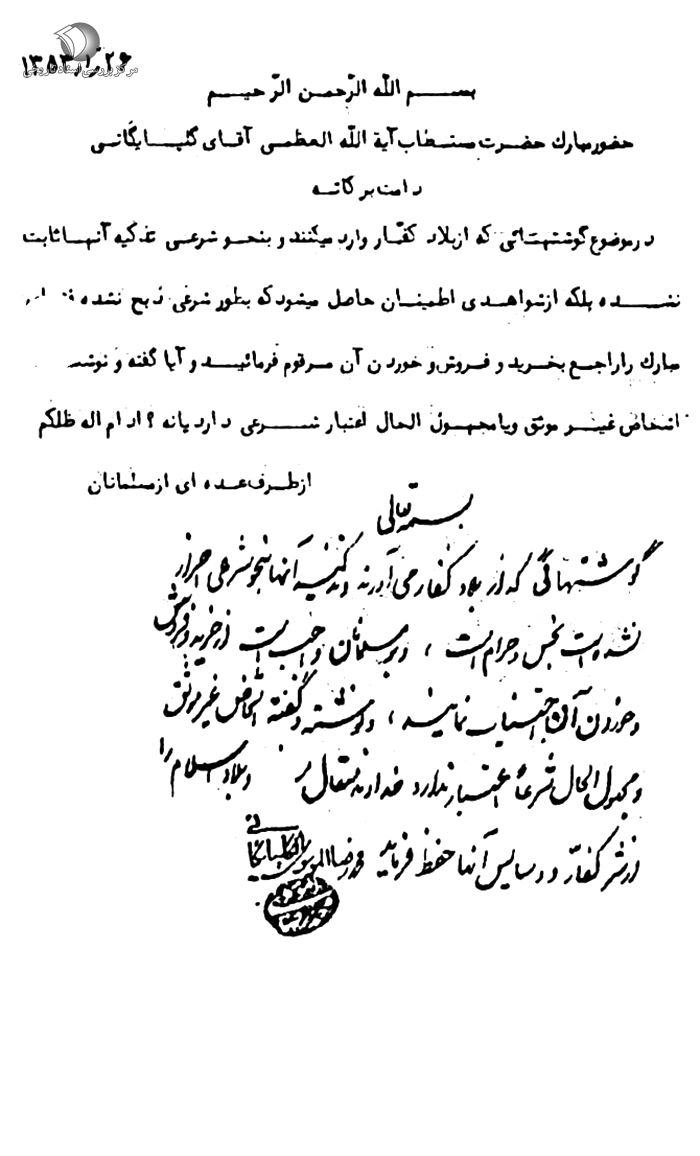 ۱۳۵۳
مرکز بررسی اسناد تاریخی
بسم الله الرحمن الرحیم
حضور مبارك حضرت مستطاب آیة الله العظمی آقای گلپایگانی
دامت برکاته
در موضوع گوشتهائی که از بلاد کفّار وارد میکنند و بنحو شرعی تذکیه آنها ثابت
نشده بلکه از شواهدی اطمینان حاصل میشود که بطور شرعی ذبح نشده
مبارك را راجع بخرید و فروش و خوردن آن مرقوم فرمائید و آیا گفته و نوشته
اشخاص غیر موثق و یا مجهول الحال اعتبار شرعی دارد یا نه ؟ ادام اله ظلکم
از طرف عده ای از مسلمانان
بسمه تعالی
گوشتهائی که از بلاد کفار می آورند و تذکیه آنها بنحو شرعی احراز
نشده است نجس و حرام است ، و بر مسلمانان واجب است از خرید و فروش
و خوردن آن اجتناب نمایند ، و نوشته و گفته اشخاص غیر موثق
و مجهول الحال شرعاً اعتبار ندارد خداوند متعال و بلاد اسلام را
از شر کفّار و دسایس آنها حفظ فرماید محمد رضا الموسوی الگلپایگانی